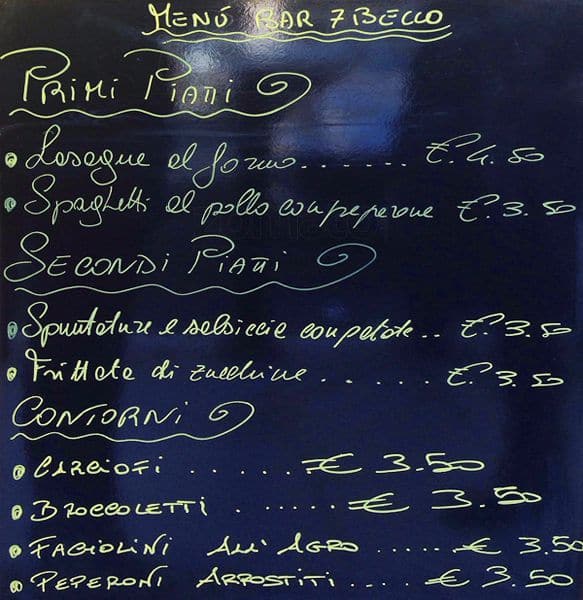 MENÚ BAR 7BELLO
PRIMI PIATTI
• Lasagne al forno....... €. 4.50
• Spaghetti al pollo con peperone €. 3.50
SECONDI PIATTI
• Spuntature e salsiccie con patate.. €. 3.50
• Frittata di zucchine ...... €. 3.50
CONTORNI
• CARCIOFI ...... € 3.50
• BROCCOLETTI . ..... € 3.50
• FAGIOLINI ALL'AGRO ..... € 3.50
• PEPERONI ARROSTITI .... € 3.50